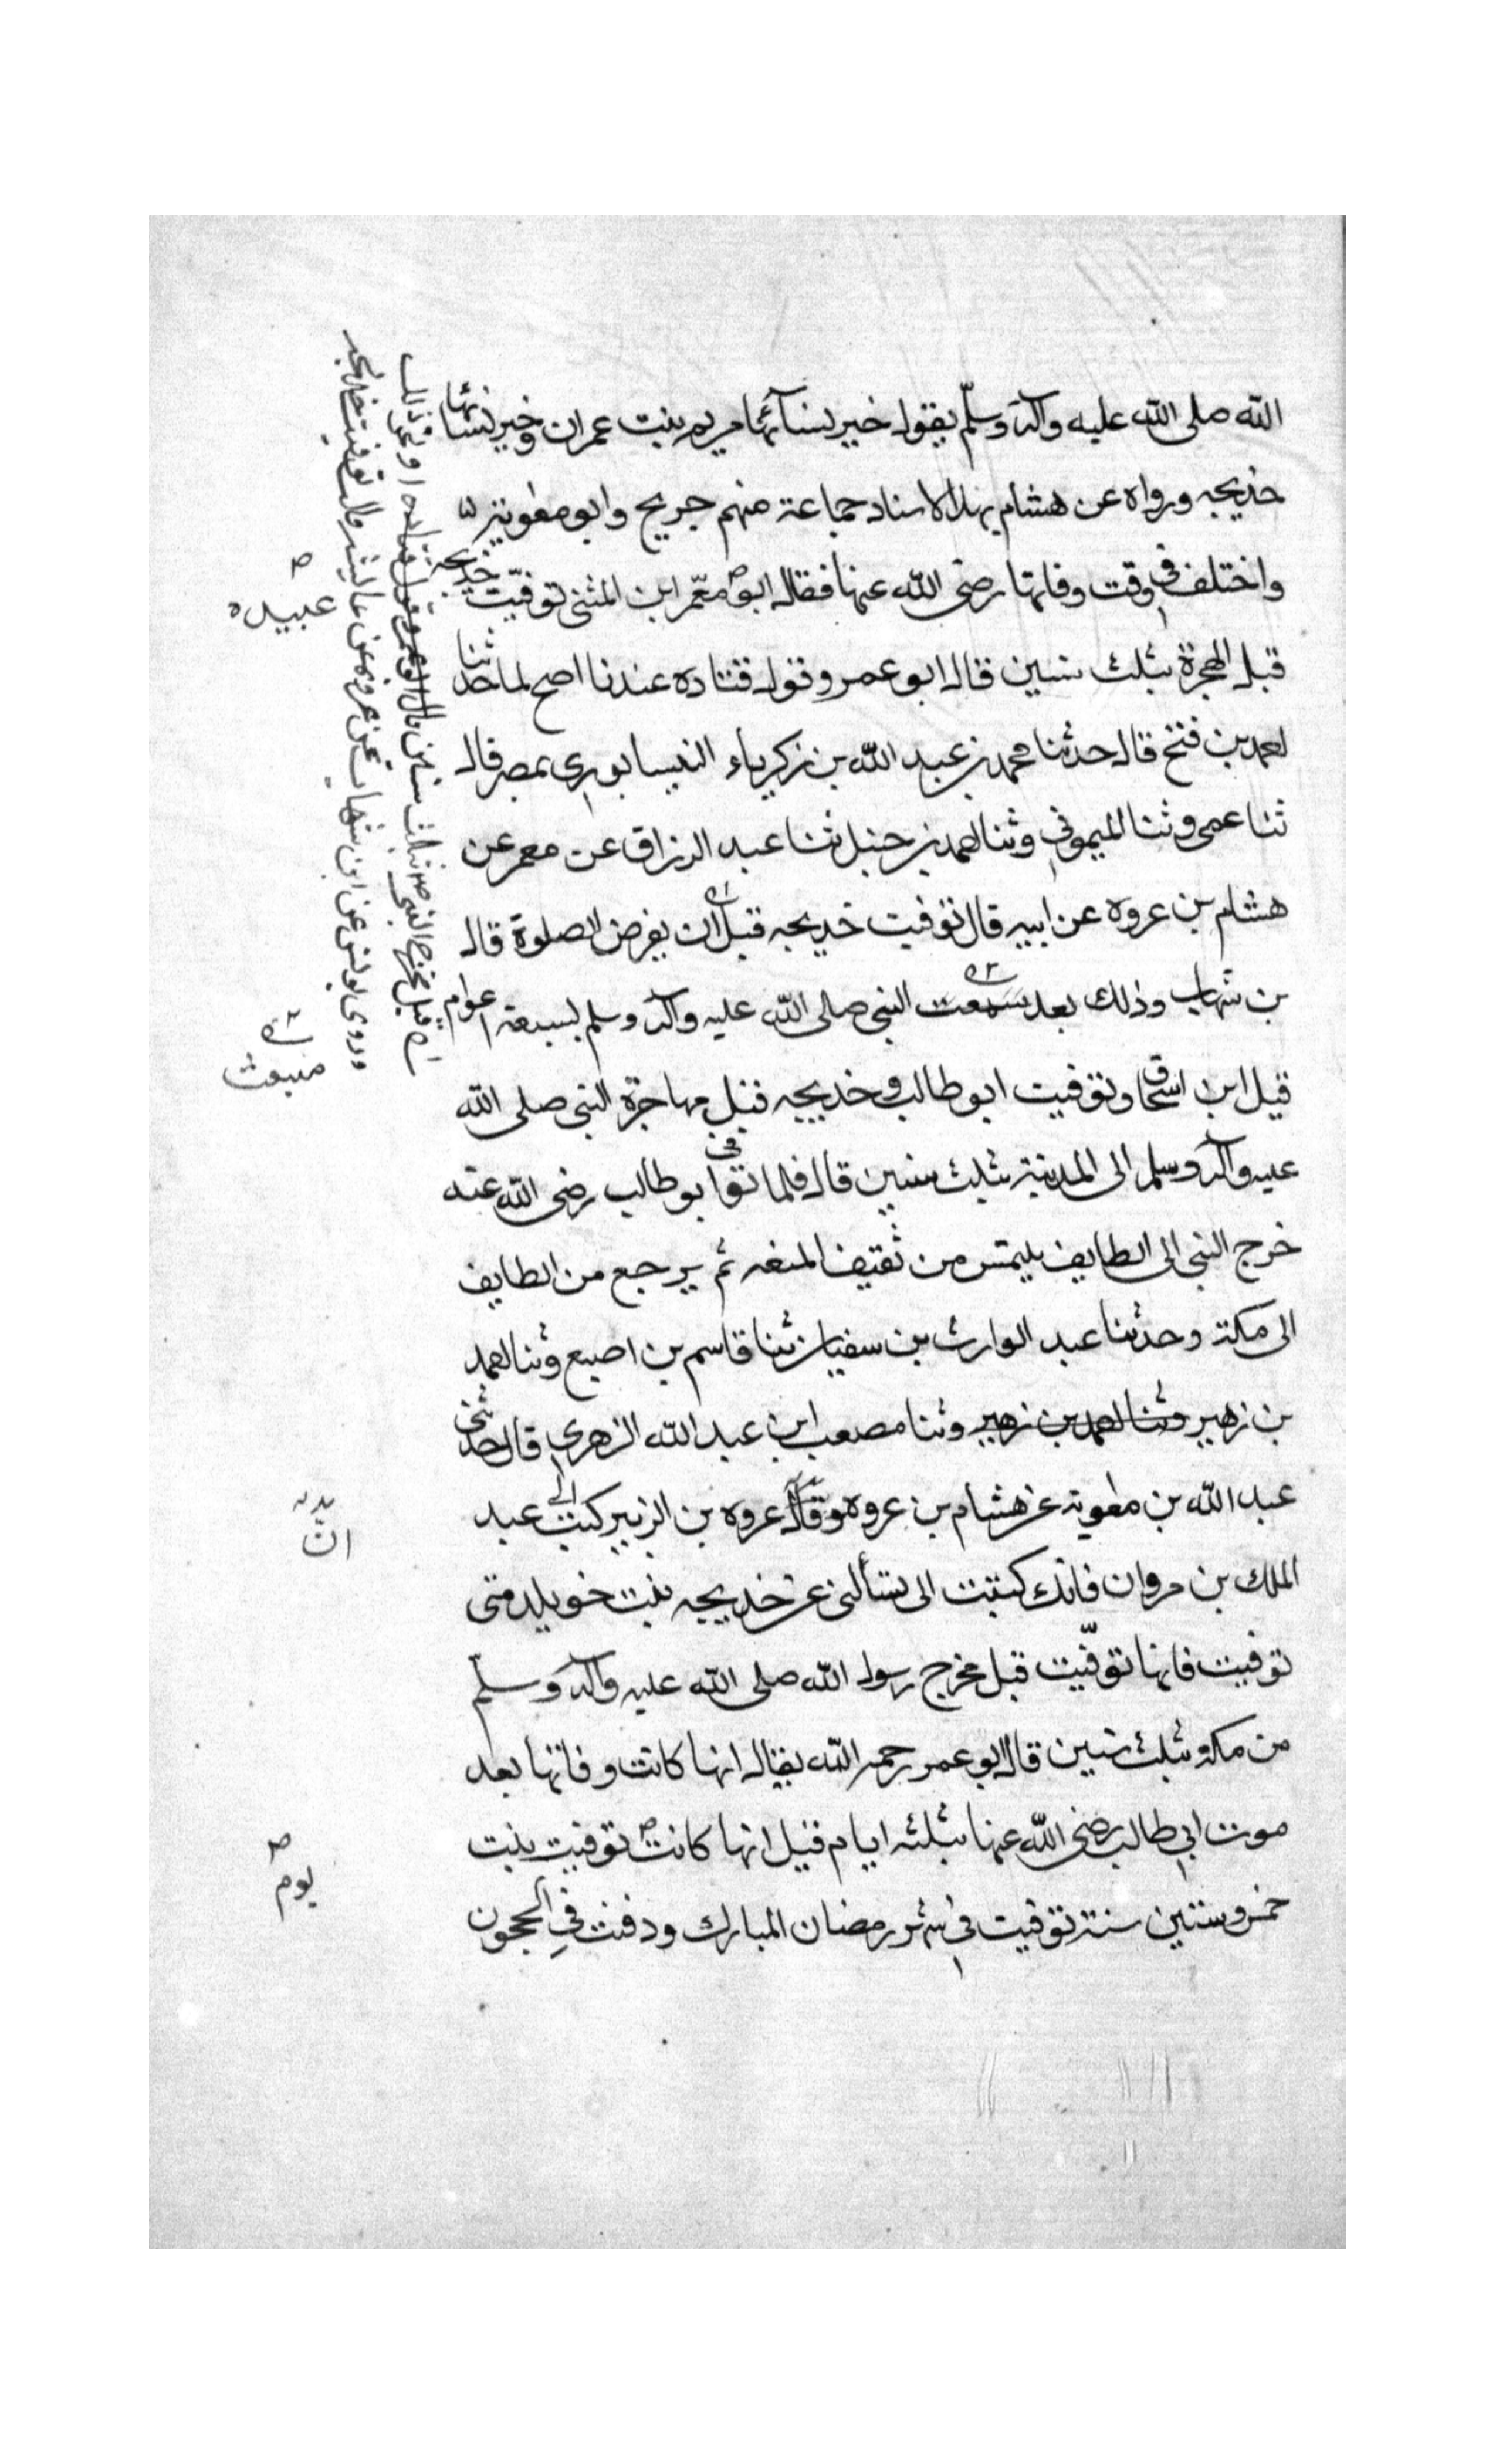 الله صلى الله عليه وآله وسلّم يقول خير نسآئها مريم بنت عمران وخير نسائها
خديجه ورواه عن هشام بهذا الاسناد جماعة منهم جريح وابو معوية
واختلف في وقت وفاتها رضى الله عنها فقال ابو معمّر ابن المثنى توفيّت خديجه
قبل الهجرة بثلث سنين قال ابو عمر وقول قتاده عندنا اصح لما حدثنا
احمد بن فتح قال حدثنا محمد بن عبد الله بن زكرياء النيسابورى بمصر قال
ثنا عمى وثنا الميمونى وثنا احمد بن حنبل ثنا عبد الرزاق عن معمر عن
هشام بن عروه عن ابيه قال توفيت خديجه قبل ان يفرض الصلوة قال
بن شهاب وذلك بعد سمعت النبى صلى الله عليه وآله وسلم بسبعة اعوام
قيل ابن اسحاق وتوفيت ابو طالب وخديجه قبل مهاجرة النبى صلى الله
عليه وآله وسلم الى المدينة بثلث سنين قال فلما توفى ابو طالب رضى الله عنه
خرج النبى الى الطايف يليمتس من ثقيف المنعه ثم يرجع من الطايف
الى مكة وحدثنا عبد الوارث بن سفيان ثنا قاسم بن اصبع وثنا احمد
بن زهير وثنا احمد بن زهير وثنا مصعب ابن عبد الله الزهرى قال حدثنى
عبد الله بن معوية عن هشام بن عروه وقال عروه بن الزبير كتبت الى عبد
الملك بن مروان فانك كتبت الى تسألنى عن خديجه بنت خويلد متى
توفيت فانها توفّيت قبل مخرج رسول الله صلى الله عليه وآله وسلّم
من مكه بثلث سنين قال ابو عمر رحمه الله يقال انها كانت وفاتها بعد
موت ابى طالب رضى الله عنها بثلثه ايام قيل انها كانت توفيت بنت
خمس وستين سنة توفيت فى شهر رمضان المبارك ودفنت فى الحجون
عبيده
قبل مخرج النبى بثلث سنين قال ابو عمر وقول قتاده
وروى يونس عن ابن شهاب عن عروه عن عايشه قالت توفيت خديجه
مبعث
ان
يوم